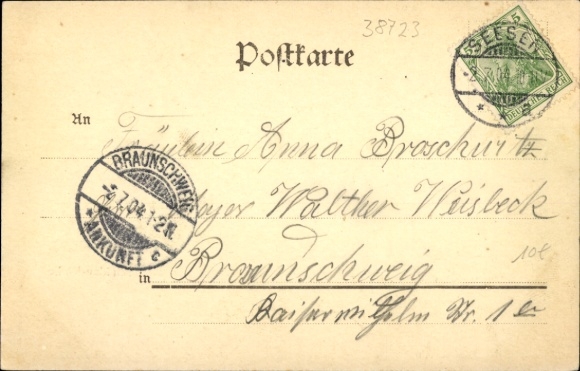 38723
Postkarte
SEESEN
7.04
5
DEUTSCHES REICH
An
Fräulein Anna Broschwitz
BRAUNSCHWEIG
7.04.1-2N.
* ANKUNFT c
Walther Weisbeck
10€
in Braunschweig
Kaiserwilhelm Str. 1